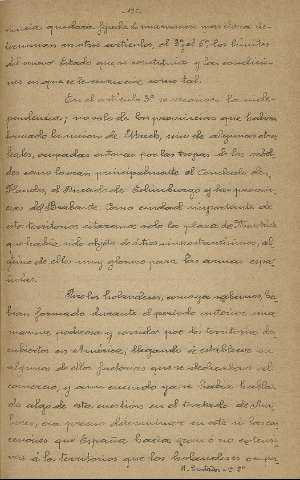 -152-
nencia quedara fijada de una manera mas clara se
enumeran en otros artículos, el 3º, el 5º, los límites
del nuevo Estado que se constituia y las condicio-
nes en que se le reconoce como tal.
En el artículo 3º se reconoce la inde-
pendencia, no solo de las provincias que habian
formado la union de Utrech, sino de algunas otras
tales, ocupadas entonces por las tropas de los
como lo eran principalmente el Condado de
Flandes, el Ducado de Limburgo y las provin-
cias del Brabante. Como ciudad importante de
este territorio citaremos solo la plaza de Maestrich
que habia sido objeto de sitios al-
guno de ellos muy glorioso para las armas espa-
ñolas.
Pero los holandeses, como ya sabemos, ha-
bian formado durante el periodo anterior una
marina poderosa y corrido por los territorios des-
cubiertos en América, llegando á establecer en
algunos de ellos factorias que se dedicaban al
comercio, y aun cuando ya se habia habla-
do algo de esta cuestion en el tratado de Am-
beres, era preciso determinar en este si las con-
cesiones que España hacía eran ó no extensi-
vas á los territorios que los holandeses ocupa-